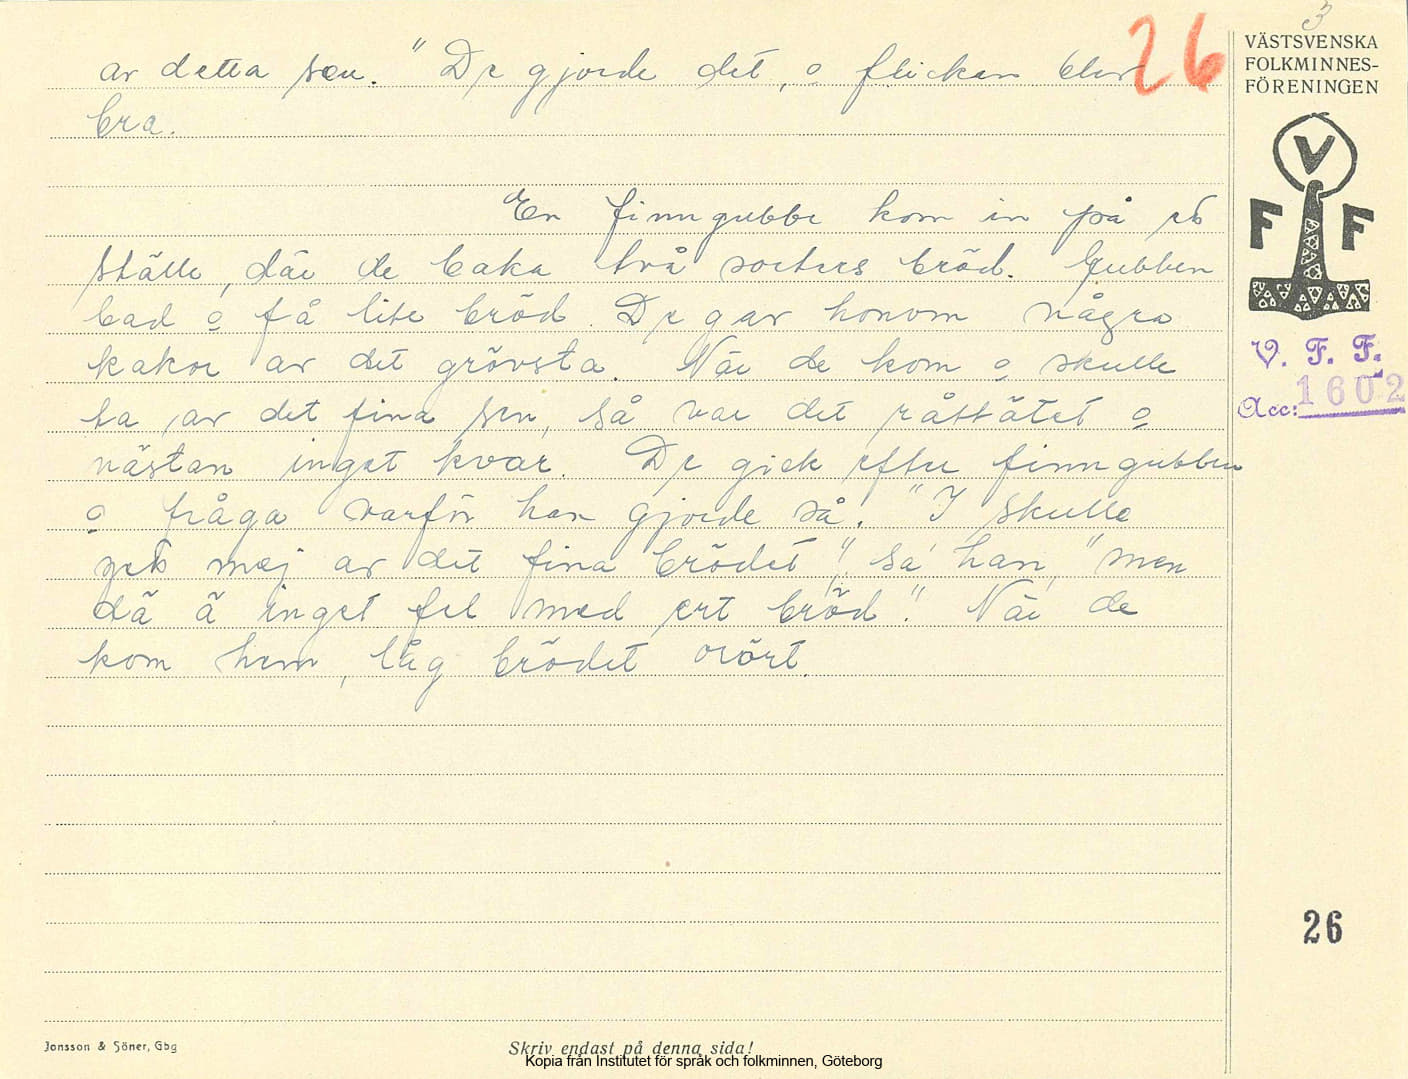 3
26
VÄSTSVENSKA
FOLKMINNES-
FÖRENINGEN
V
F F
V. F. F.
Acc: 1602
av detta sen." De gjorde det, o flickan blev
bra.
En finngubbe kom in på ett
ställe, där de baka två sorters bröd. Gubben
bad o få lite bröd. De gav honom några
kakor av det grövsta. När de kom o skulle
ta av det fina sen, så var det råttätet o
nästan inget kvar. De gick efter finngubben
o fråga varför han gjorde så. "I skulle
gett mej av det fina brödet", sa han, "men
dä ä inget fel med ert bröd". När de
kom hem, låg brödet orört.
26
Jonsson & Söner, Gbg
Skriv endast på denna sida!
Kopia från Institutet för språk och folkminnen, Göteborg